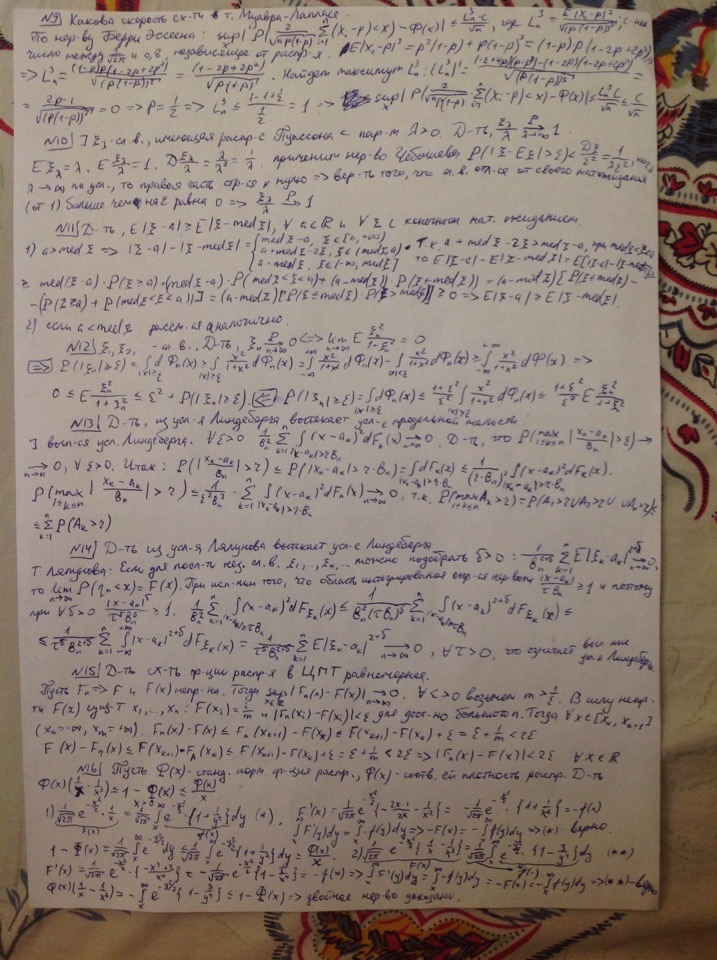 N9] Какова скорость сх-ти в т. Муавра-Лапласа.
По нер-ву Берри Эссеена: sup| P{ 2/√(np(1-p)) Σ(X_i-p)<x} - Φ(x)| ≤ L_n^3·C/√n, где L_n^3 = E|X_i-p|^3/√(p(1-p))^3, C-нек
число между 1/√2π и 0,8, независящее от распр-я. E|X_i-p|^3 = p^3(1-p) + p(1-p)^3 = (1-p)p(1-2p+2p^2)
=> L_n^3 = (1-p)p(1-2p+2p^2)/√(p(1-p))^3 = (1-2p+2p^2)/√(p(1-p)). Найдем максимум L_n^3: (L_n^3)' =
=0 => p = 1/2 => L_n^3 ≤ (1-1+1/2)/(1/2) = 1 => sup| P{ 2/√(np(1-p)) Σ(X_i-p)<x} - Φ(x)| ≤ L_n^3 C/√n ≤ C/√n
N10] ξ_λ - сл. в., имеющая распр. с Пуассона с пар-м λ>0. Д-ть, ξ_λ/λ P→ 1
Eξ_λ = λ. E ξ_λ/λ = 1. D ξ_λ/λ = λ/λ² = 1/λ. применим нер-во Чебышева P(|ξ-Eξ|>ε) < Dξ/ε² = 1/(λε²),
λ→∞ по усл., то правая часть стр-ся к нулю => вер-ть того, что сл. в. откл-ся от своего матожидания
(от 1) больше чем на ε равна 0 => ξ_λ/λ P→ 1
N11] Д-ть, E|ξ-a| ≥ E|ξ-medξ|, ∀ a∈R и ∀ ξ с конечным мат. ожиданием.
1) a>medξ => |ξ-a| - |ξ-medξ| = { medξ-a, ξ∈[a,+∞) a+medξ-2ξ, ξ∈(medξ,a) a-medξ, ξ∈(-∞,medξ] Т.к. a+medξ-2ξ > medξ-a, при medξ<ξ<a то E|ξ-a| - E|ξ-medξ| = E(|ξ-a|-|ξ-medξ|)
≥ (medξ-a)·P(ξ≥a) + (medξ-a)·P(medξ<ξ<a) + (a-medξ) P(ξ≤medξ) = (a-medξ)[P(ξ≤medξ) -
-(P(ξ≥a) + P(medξ<ξ<a))] = (a-medξ)[P(ξ≤medξ) - P(ξ>medξ)] ≥ 0 => E|ξ-a| ≥ E|ξ-medξ|.
2) если a<medξ рассм-ся аналогично.
N12] ξ_1, ξ_2, ... - сл. в.. Д-ть, ξ_n P→ 0 <=> lim E ξ_n²/(1+ξ_n²) = 0
[=>] P(|ξ_n|≥ε) = ∫ dΦ_n(x) ≥ ∫ x²/(1+x²) dΦ_n(x) = ∫ x²/(1+x²) dΦ_n(x) - ∫ x²/(1+x²) dΦ_n(x) ≥ ∫ x²/(1+x²) dΦ(x) =>
0 ≤ E ξ_n²/(1+ξ_n²) ≤ ε² + P(|ξ_n|≥ε). [<=] P(|ξ_n|≥ε) = ∫ dΦ_n(x) ≤ (1+ε²)/ε² ∫ x²/(1+x²) dΦ_n(x) ≤ (1+ε²)/ε² E ξ_n²/(1+ξ_n²)
N13] Д-ть, из усл-я Линдеберга вытекает усл-е предельной малости
] вып-ся усл. Линдеберга. ∀ε>0 1/B_n² Σ ∫ (x-a_k)² dF_k(x) → 0. Д-ть, что P(max |(x_k-a_k)/B_n| > ε) →
→ 0, ∀ε>0. Итак: P(|(x_k-a_k)/B_n| > τ) ≤ P(|x_k-a_k| > τ·B_n) = ∫ dF_k(x) ≤ 1/(τ·B_n)² ∫ (x-a_k)² dF_k(x).
P(max |(x_k-a_k)/B_n| > τ) ≤ 1/(τ²B_n²) · Σ ∫ (x-a_k)² dF_n(x) → 0, т.к. P(max A_k > τ) = P(A_1>τ ∪ A_2>τ ∪ ... ∪ A_n>τ) ≤
≤ Σ P(A_k>τ)
N14] Д-ть из усл-я Ляпунова вытекает усл-е Линдеберга
Т. Ляпунова. Если для посл-ти нез. сл. в. ξ_1,..., ξ_n, ... можно подобрать δ>0 : 1/B_n^(2+δ) Σ E|ξ_k-a_k|^(2+δ) → 0,
то lim P(η_n<x) = F(x). При исп-нии того, что область интегрирования опр-ся нер-вом |x-a_k|/(τB_n) ≥ 1 и поэтому
при ∀δ>0 |x-a_k|^δ/(τ^δ B_n^δ) ≥ 1. 1/B_n² Σ ∫ (x-a_k)² dF_ξk(x) ≤ 1/(B_n²(τB_n)^δ) Σ ∫ |x-a_k|^(2+δ) dF_ξk(x) ≤
≤ 1/(τ^δ B_n^(2+δ)) Σ ∫ |x-a_k|^(2+δ) dF_ξk(x) = 1/(τ^δ B_n^(2+δ)) Σ E|ξ_k-a_k|^(2+δ) → 0, ∀τ>0, что означает вып-ние усл-я Линдеберга.
N15] Д-ть сх-ть ф-ции распр-я в ЦПТ равномерная.
Пусть F_n => F и F(x) непр-на. Тогда sup |F_n(x)-F(x)| → 0. ∀ε>0 возьмем m>1/ε. В силу непр-
ти F(x) сущ-т x_1,..., x_n : F(x_i) = i/m и |F_n(x_i)-F(x_i)|<ε для дост-но большого n. Тогда ∀x∈[x_k, x_{k+1}]
(x_0=-∞, x_m=+∞). F_n(x)-F(x) ≤ F_n(x_{k+1}) - F(x_k) ≤ F(x_{k+1}) - F(x_k) + ε = ε + 1/m < 2ε
F(x)-F_n(x) ≤ F(x_{k+1}) - F_n(x_k) ≤ F(x_{k+1}) - F(x_k) + ε = ε + 1/m < 2ε => |F_n(x)-F(x)| < 2ε ∀x∈R
N16] Пусть Φ(x) - станд. норм. ф-ция распр., φ(x) - соотв. ей плотность распр. Д-ть
φ(x)(1/x - 1/x³) ≤ 1 - Φ(x) ≤ φ(x)/x
1) 1/√2π e^(-x²/2) · 1/x = 1/√2π ∫ e^(-y²/2) {1+1/y²} dy (*). F'(x) = 1/√2π e^(-x²/2) {-2x/2 · 1/x - 1/x²} = -1/√2π e^(-x²/2) · {1+1/x²} = -f(x)
∫ F'(y)dy = ∫ -f(y)dy => -F(x) = -∫ f(y)dy => (*) верно.
1-Φ(x) = 1/√2π ∫ e^(-y²/2) dy ≤ 1/√2π ∫ e^(-y²/2) {1+1/y²} dy = φ(x)/x. 2) 1/√2π e^(-x²/2) {1/x - 1/x³} = 1/√2π ∫ e^(-y²/2) · {1-3/y⁴} dy (**)
=> ∫ F'(y)dy = ∫ -f(y)dy = -F(x) = -∫ f(y)dy => (**) - верно
=> двойное нер-во доказано.